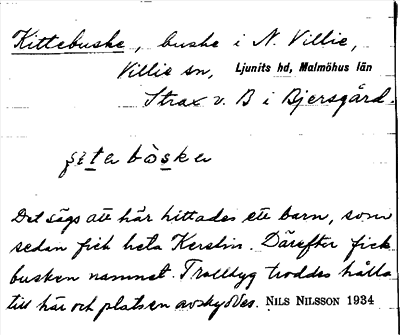 Kittebuske, buske i N. Villie,
Villie sn, Ljunits hd, Malmöhus län
Strax v. B i Bjersgård.
ʃìtabòska
Det sägs att här hittades ett barn, som
sedan fick heta Kerstin. Därefter fick
busken namnet. Trolltyg troddes hålla
till här och platsen avskyddes. NILS NILSSON 1934